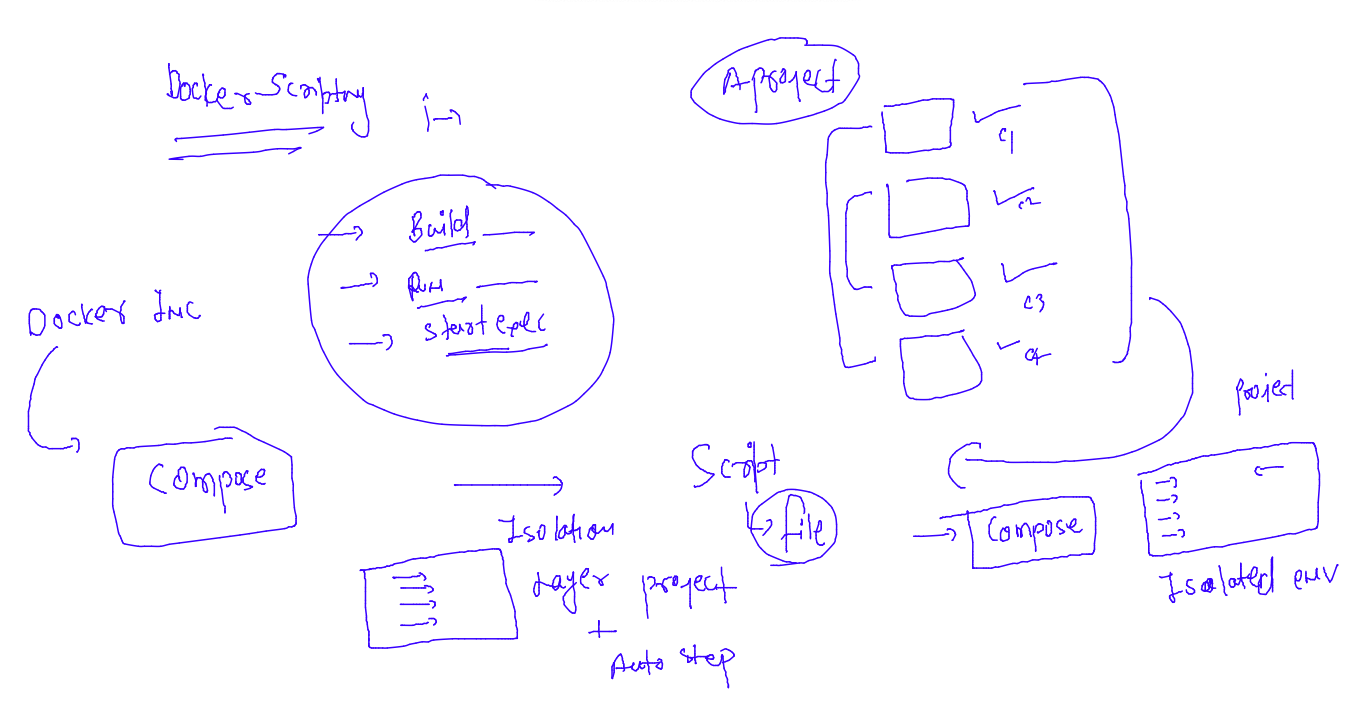 Docker Scripting
Build
Run
start exec
Docker Inc
Compose
Isolation
Layer project
+
Auto step
A project
C1
C2
C3
C4
Script
file
Compose
project
Isolated env